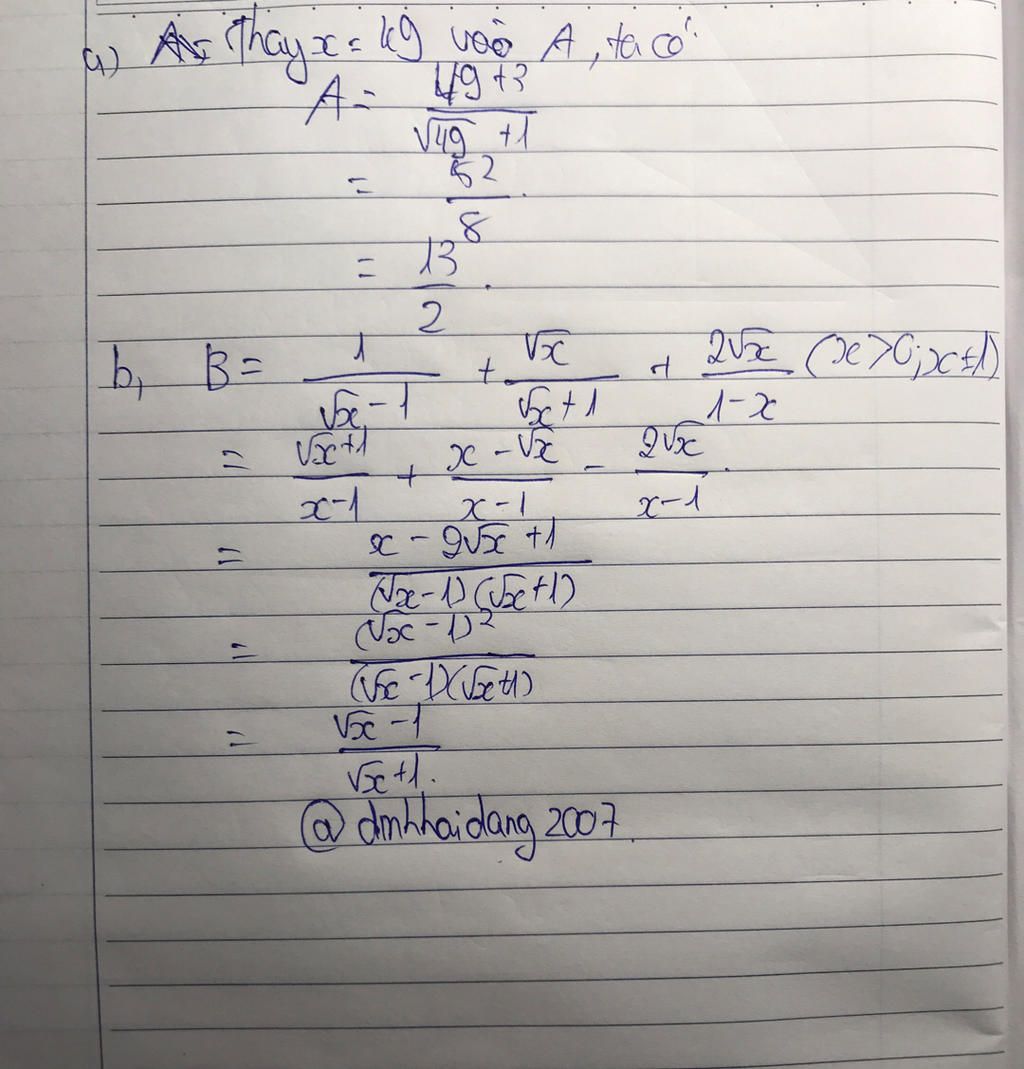 a) Thay x = 49 vào A, ta có:
A = \frac{49+3}{\sqrt{49}+1}
= \frac{52}{8}.
= \frac{13}{2}.
b, B = \frac{1}{\sqrt{x}-1} + \frac{\sqrt{x}}{\sqrt{x}+1} + \frac{2\sqrt{x}}{1-x} (x>0; x≠1)
= \frac{\sqrt{x}+1}{x-1} + \frac{x-\sqrt{x}}{x-1} - \frac{2\sqrt{x}}{x-1}.
= \frac{x-2\sqrt{x}+1}{(\sqrt{x}-1)(\sqrt{x}+1)}
= \frac{(\sqrt{x}-1)^2}{(\sqrt{x}-1)(\sqrt{x}+1)}
= \frac{\sqrt{x}-1}{\sqrt{x}+1}.
@dmhhaidang2007.